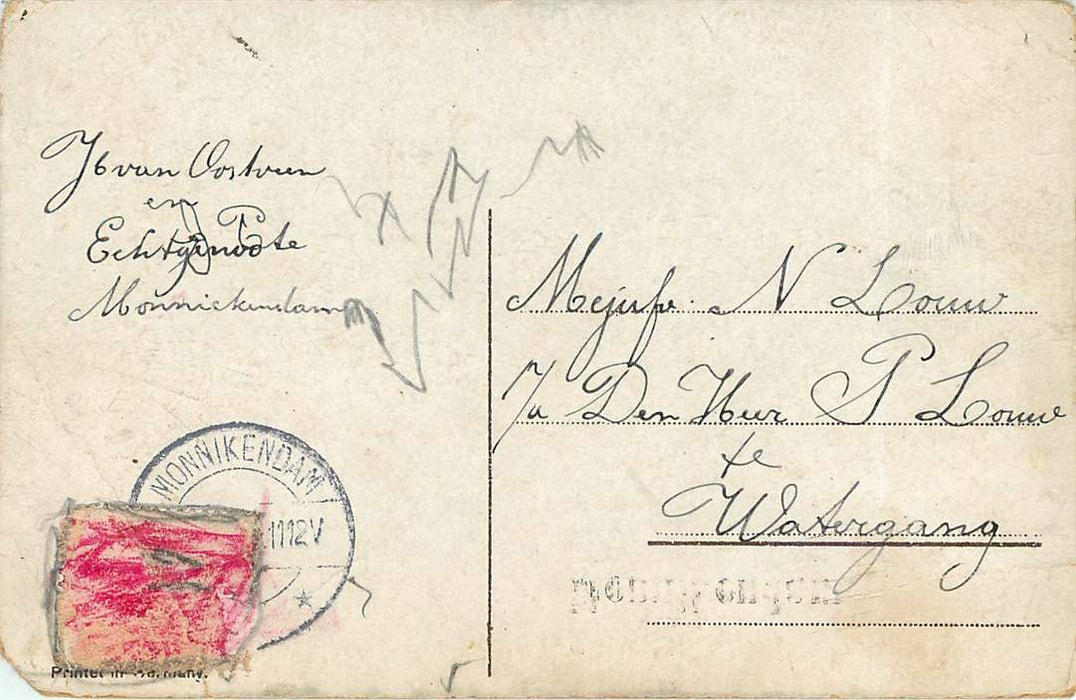 Jb van Oostveen
en
Echtgenoote
Monnickendam
Mejufr. N Louw
p/a Den Heer P Louw
te
Watergang
MONNIKENDAM
1112V
Printed in Germany.